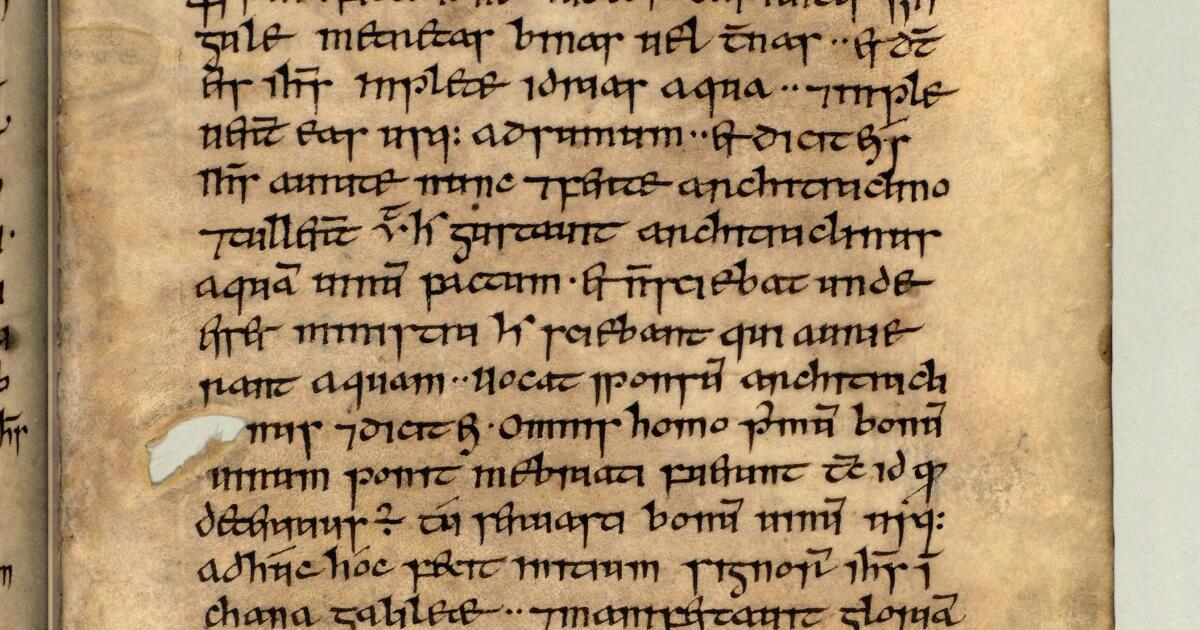 gule metretas binas uel t̄nas ·· et dt̄
eis ih̄s inplete idrias aqua ·· ⁊inple
uer̄t eas usq: adsumum ·· et dicit eis
ih̄s aurite nunc ⁊ferte architriclino
⁊tuller̄t gustauit architriclinus
aquā uinū factum · et n̄sciebat unde
esset ministri h̓ sciebant qui aurie
rant aquam ·· uocat sponsū architricli
nus ⁊dicit ei · Omnis homo p̓mū bonū
uinum ponit inebriati fuerunt tc̄ id qd̄
deterius÷ tū seruasti bonū uinū usq:
adhūc hoc fecit initium signorū ih̄s ī
chana galileae ·· ⁊manifestauit gloriā